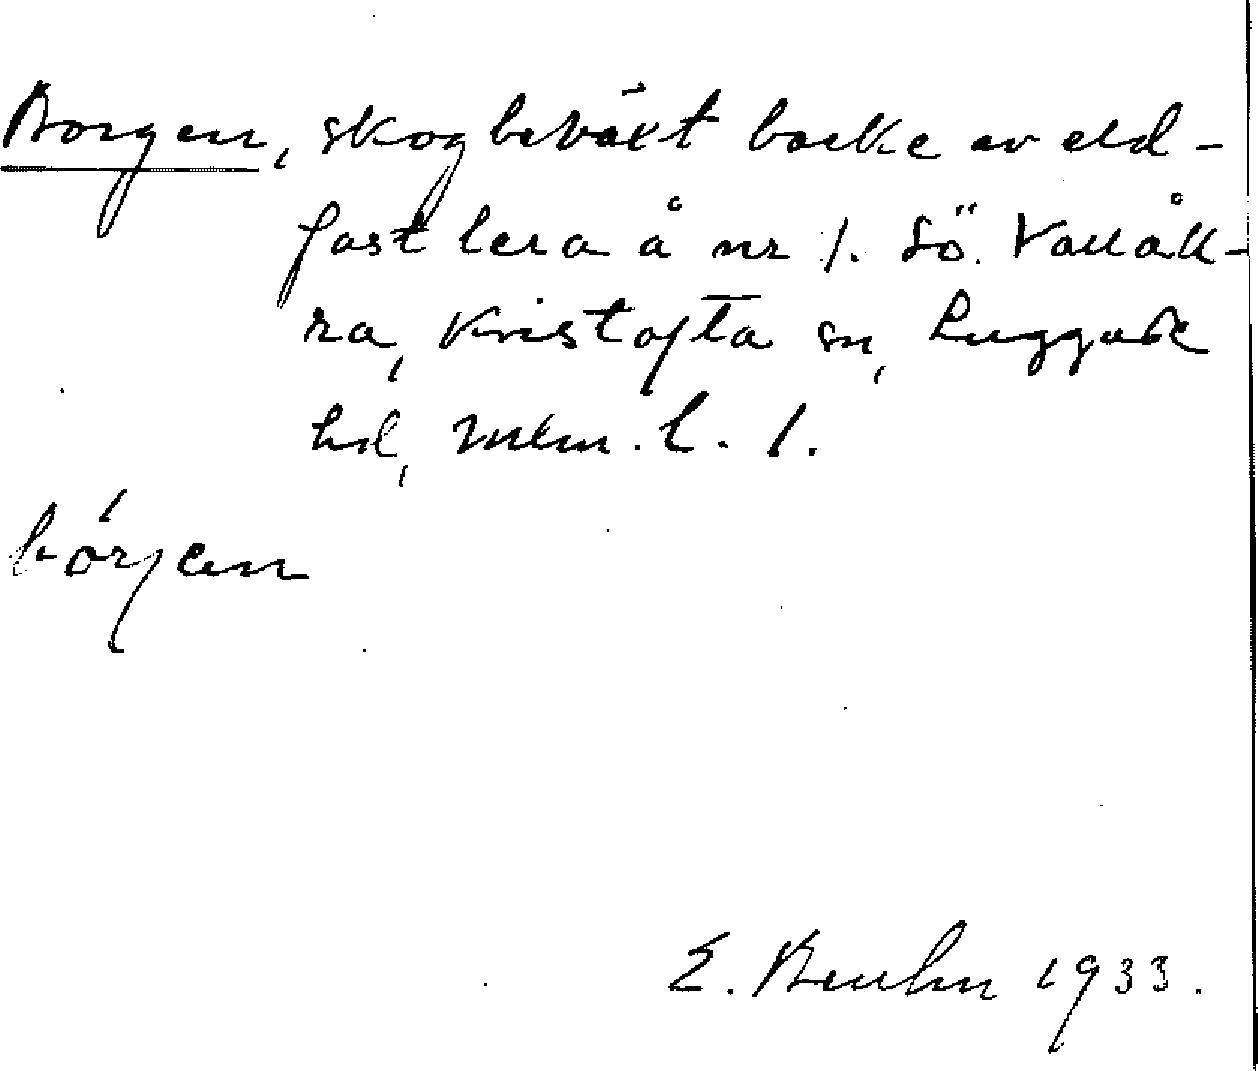 Borgen, skogbeväxt backe av eld-
fast lera å nr 1. Sö. Vallåk-
ra, Kristofta sn, Luggude
hd, Mlm. l. 1.
bórjen
E. Bruhn 1933.